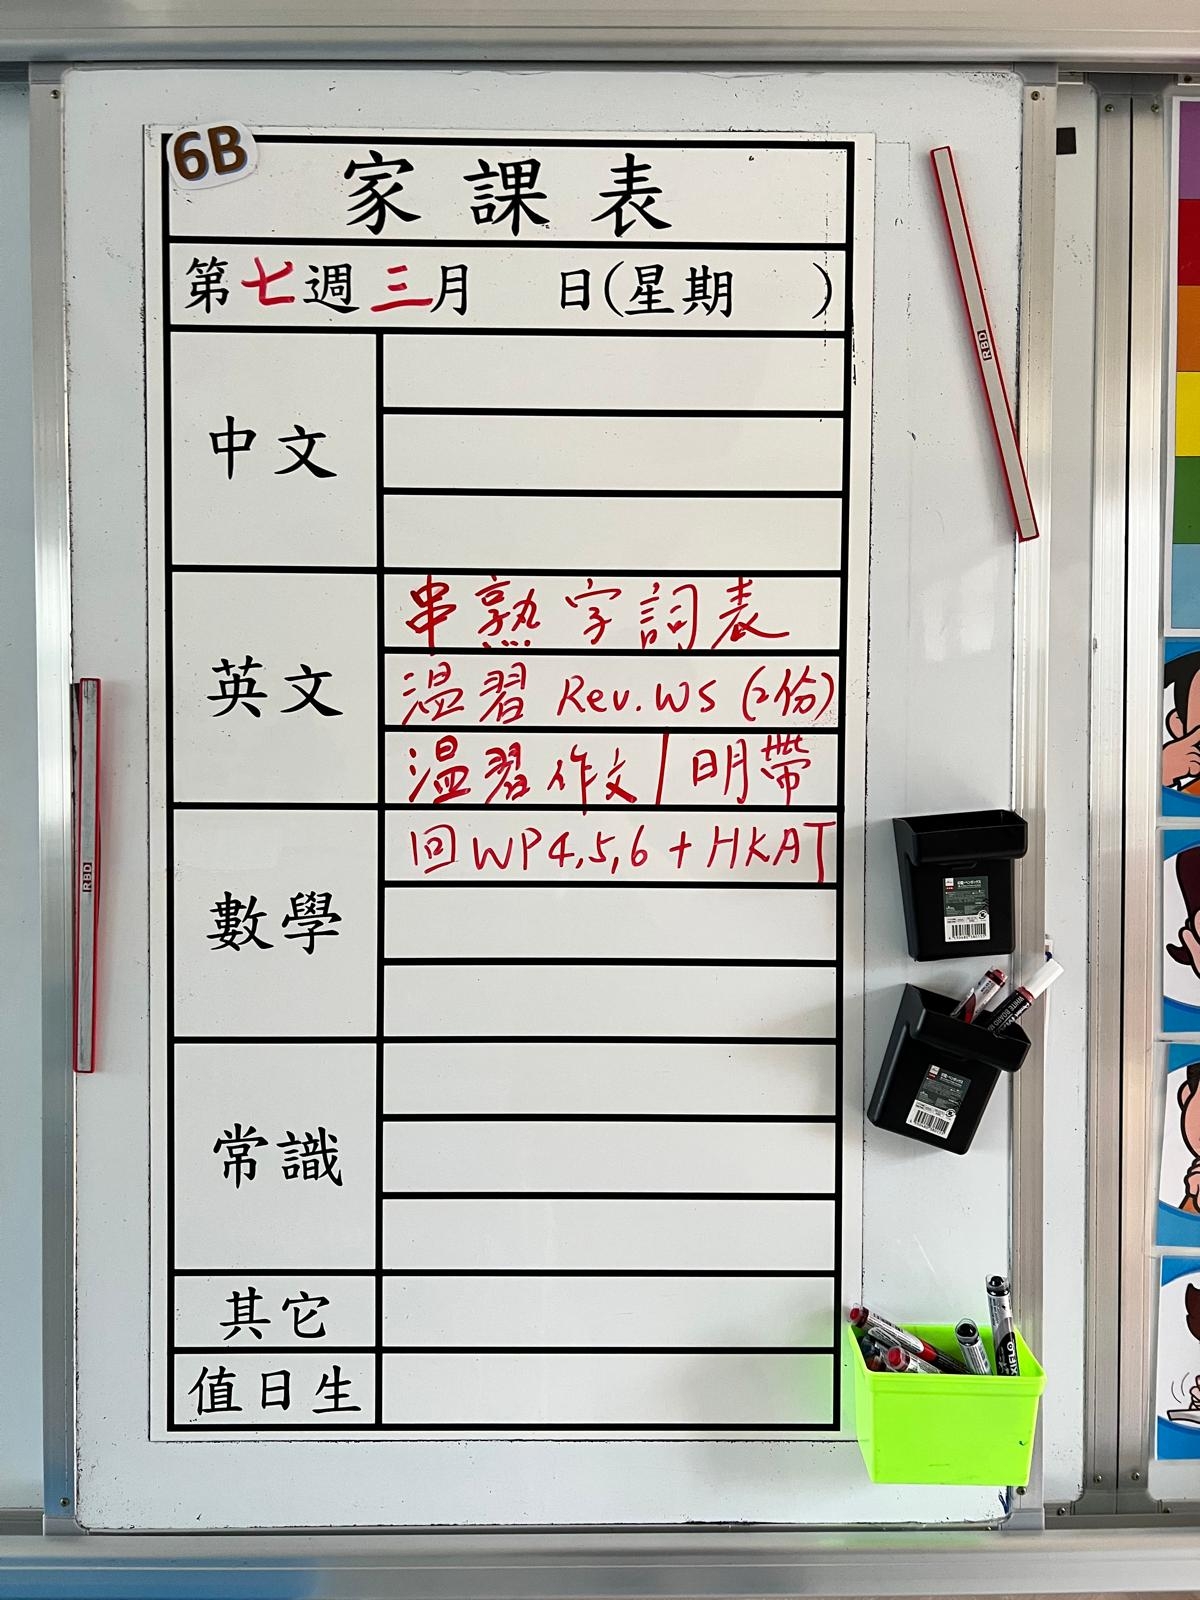 6B
家課表
第七週三月 日(星期 )
中文
英文
串熟字詞表
温習 Rev. WS (2份)
温習作文/明帶
數學
回WP4,5,6 + HKAT
常識
其它
值日生
RBD
RBD
WHITE BOARD M